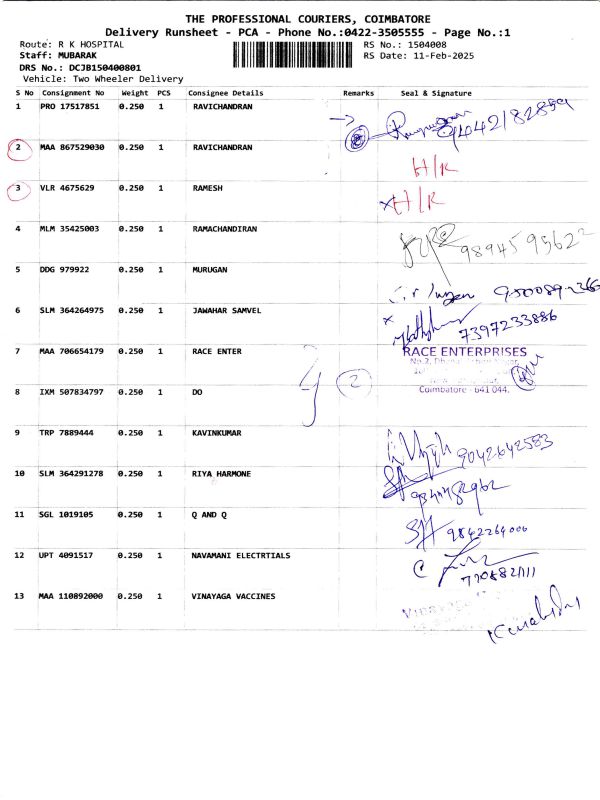 THE PROFESSIONAL COURIERS, COIMBATORE
Delivery Runsheet - PCA - Phone No.:0422-3505555 - Page No.:1
Route: R K HOSPITAL RS No.: 1504008
Staff: MUBARAK RS Date: 11-Feb-2025
DRS No.: DCJB150400801
Vehicle: Two Wheeler Delivery
S No Consignment No Weight PCS Consignee Details Remarks Seal & Signature
1 PRO 17517851 0.250 1 RAVICHANDRAN
2 MAA 867529030 0.250 1 RAVICHANDRAN H/R
3 VLR 4675629 0.250 1 RAMESH H/R
4 MLM 35425003 0.250 1 RAMACHANDIRAN 9894595622
5 DDG 979922 0.250 1 MURUGAN
6 SLM 364264975 0.250 1 JAWAHAR SAMVEL 7397233886
7 MAA 706654179 0.250 1 RACE ENTER RACE ENTERPRISES
No.2,
2
Coimbatore - 641 044.
8 IXM 507834797 0.250 1 DO
9 TRP 7889444 0.250 1 KAVINKUMAR 9042642583
10 SLM 364291278 0.250 1 RIYA HARMONE
11 SGL 1019105 0.250 1 Q AND Q 9842264006
12 UPT 4091517 0.250 1 NAVAMANI ELECTRTIALS
13 MAA 110892000 0.250 1 VINAYAGA VACCINES